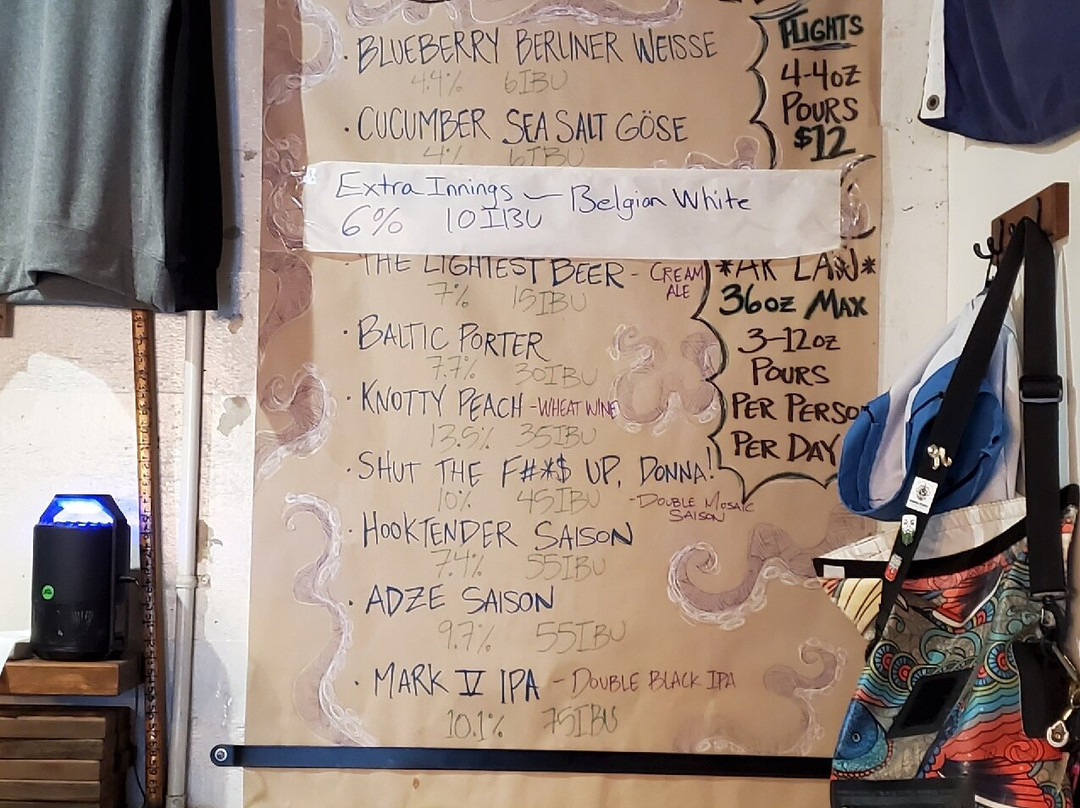 · BLUEBERRY BERLINER WEISSE
4.4% 6IBU
· CUCUMBER SEA SALT GÖSE
4% 6IBU
Extra Innings — Belgian White
6% 10IBU
· THE LIGHTEST BEER - CREAM
ALE
7% 15IBU
· BALTIC PORTER
7.7% 30IBU
· KNOTTY PEACH - WHEAT WINE
13.5% 35IBU
· SHUT THE F#*$ UP, DONNA!
10% 45IBU - DOUBLE MOSAIC
SAISON
· HOOKTENDER SAISON
7.4% 55IBU
· ADZE SAISON
9.7% 55IBU
· MARK V IPA - DOUBLE BLACK IPA
10.1% 75IBU
FLIGHTS
4-4oz
POURS
$12
*AK LAW*
36oz MAX
3-12oz
POURS
PER PERSO
PER DAY